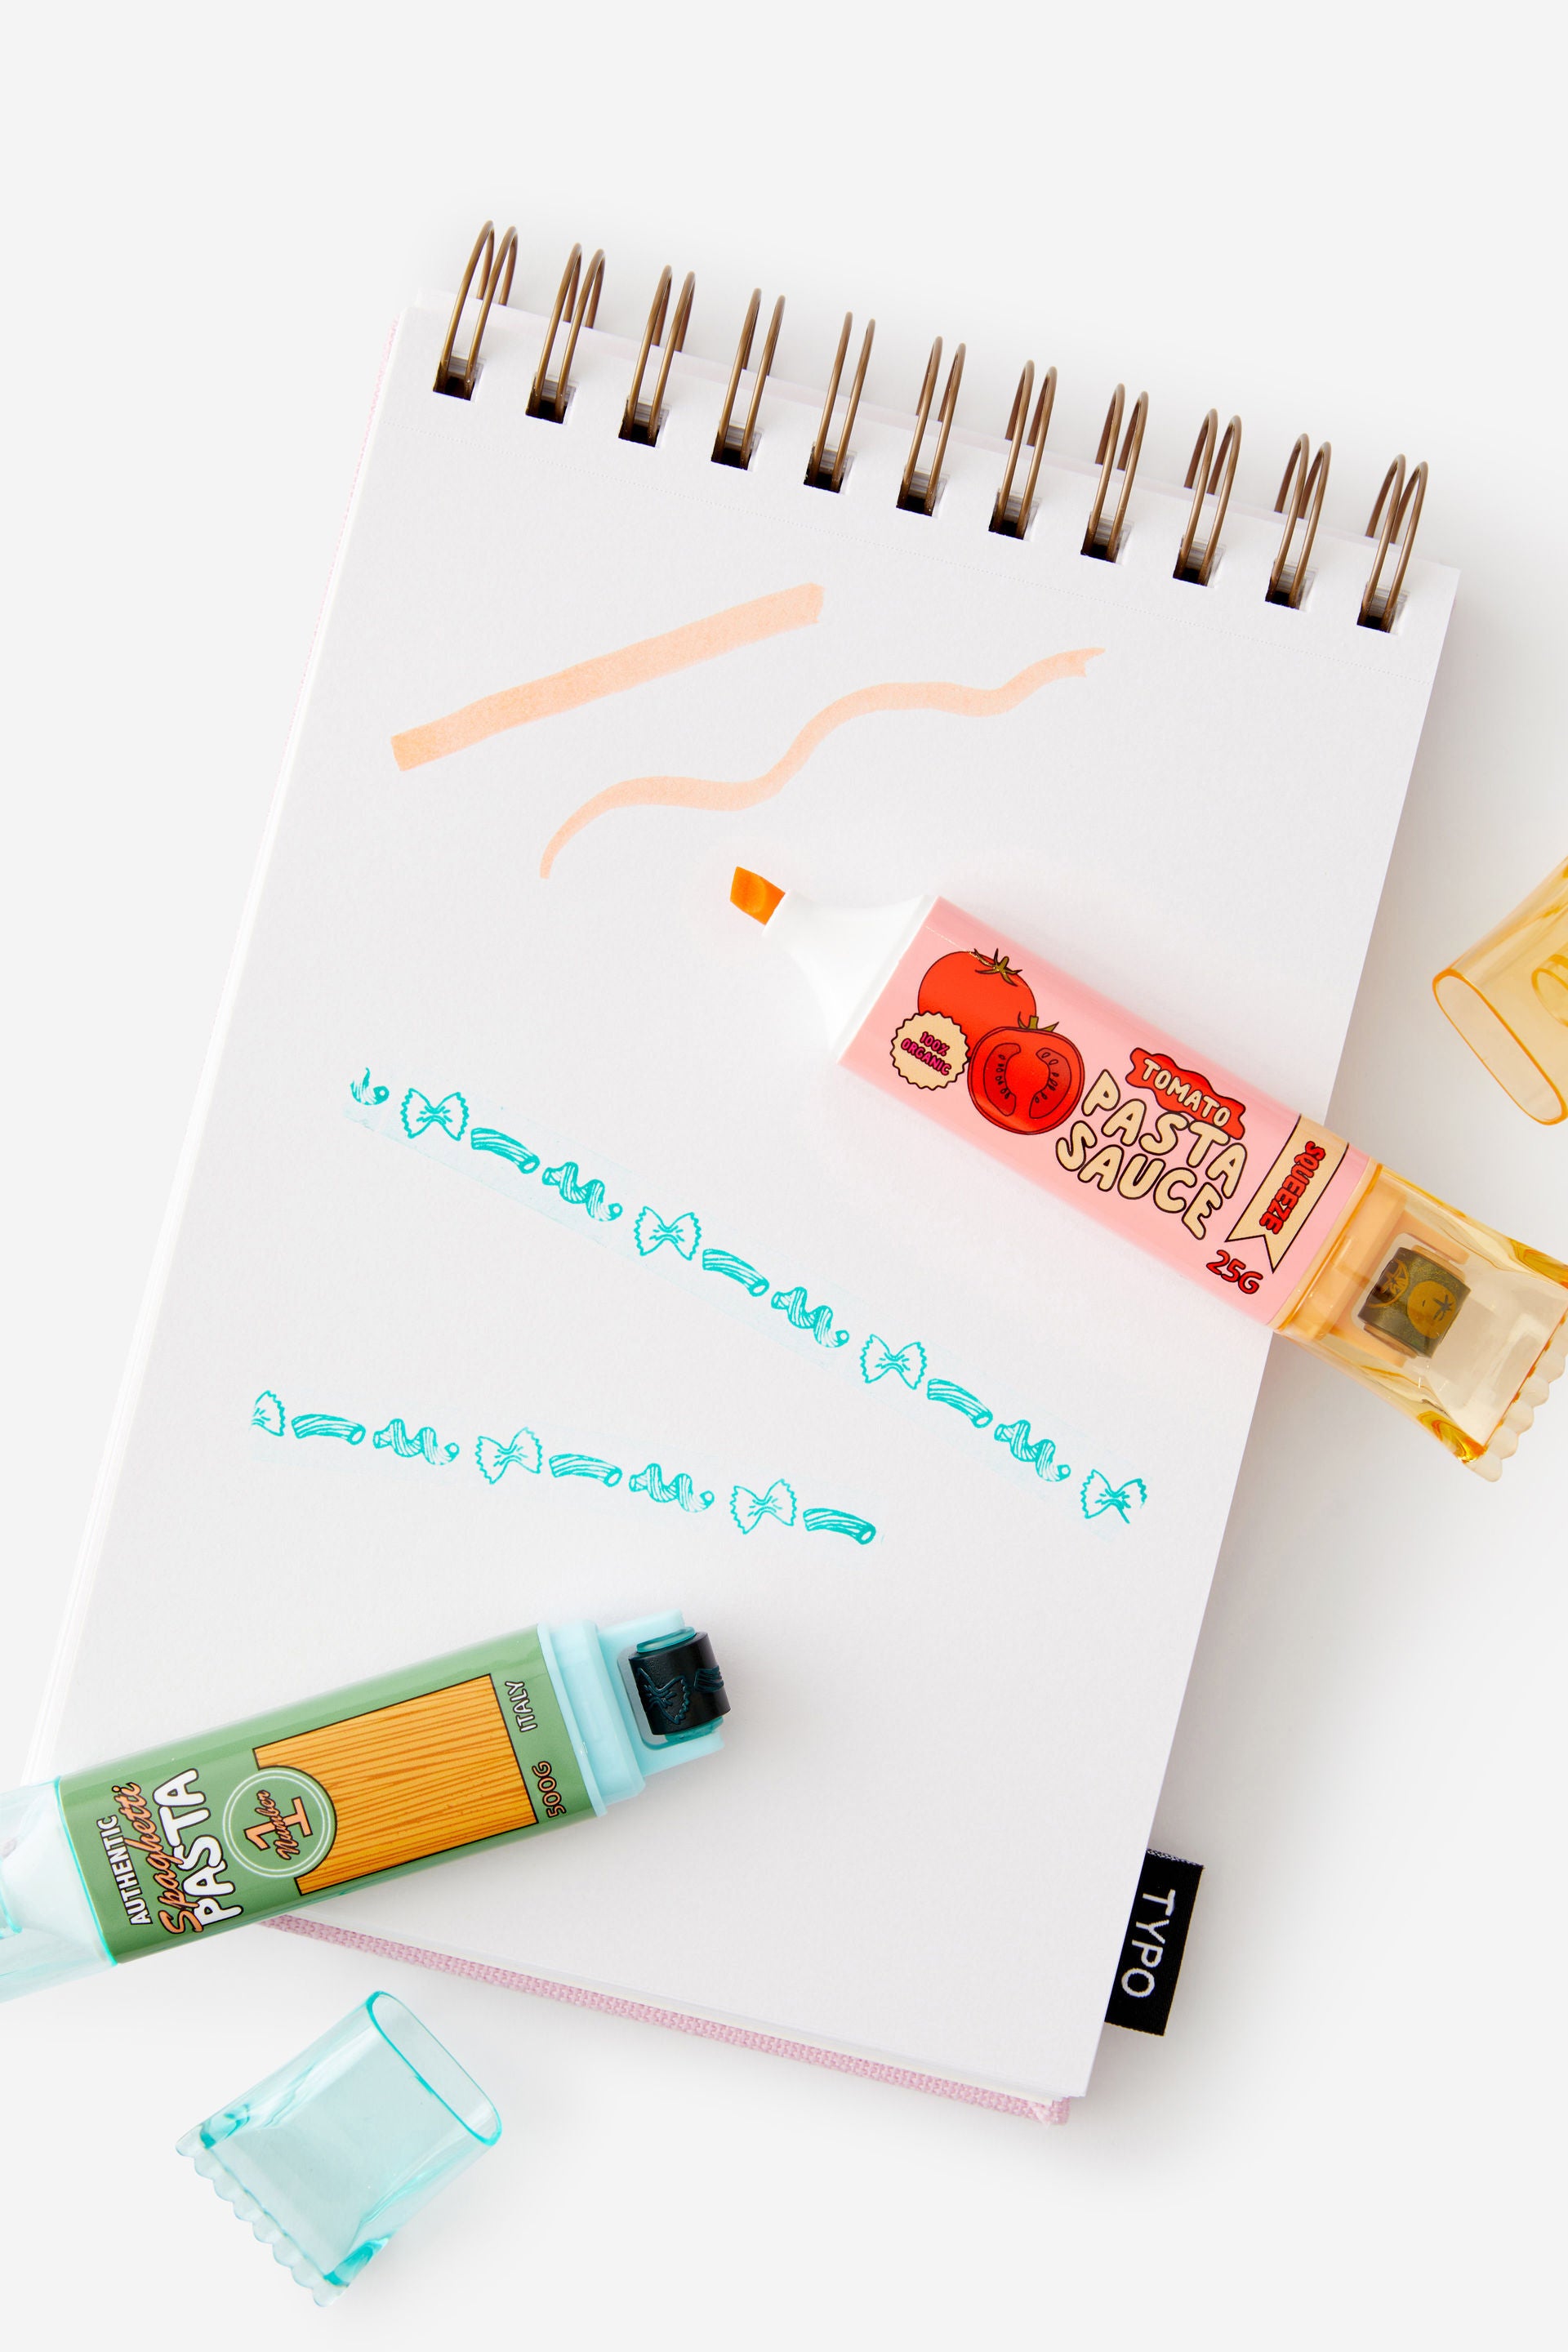 100%
ORGANIC
TOMATO
PASTA
SAUCE
SQUEEZE
25G
AUTHENTIC
Spaghetti
PASTA
Number
1
500G
ITALY
TYPO